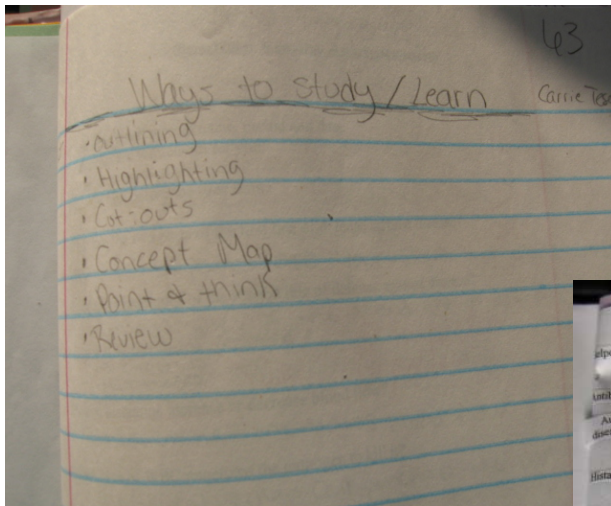 63
Ways to study / Learn
Carrie
• outlining
• Highlighting
• Cut-outs
• Concept Map
• Point & think
• Review